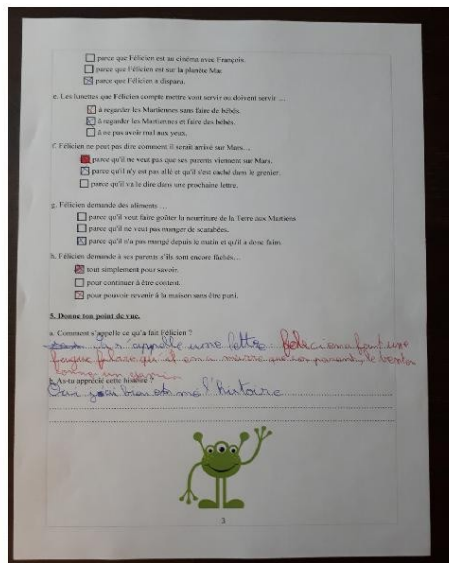 parce que Félicien est au cinéma avec François.
parce que Félicien est sur la planète Mar
parce que Félicien a disparu.
e. Les lunettes que Félicien compte mettre vont servir ou doivent servir …
à regarder les Martiennes sans faire de bébés.
à regarder les Martiennes et faire des bébés.
à ne pas avoir mal aux yeux.
f. Félicien ne peut pas dire comment il serait arrivé sur Mars…
parce qu'il ne veut pas que ses parents viennent sur Mars.
parce qu'il n'y est pas allé et qu'il s'est caché dans le grenier.
parce qu'il va le dire dans une prochaine lettre.
g. Félicien demande des aliments …
parce qu'il veut faire goûter la nourriture de la Terre aux Martiens
parce qu'il ne veut pas manger de scarabées.
parce qu'il n'a pas mangé depuis le matin et qu'il a donc faim
h. Félicien demande à ses parents s'ils sont encore fâchés…
tout simplement pour savoir.
pour continuer à être content.
pour pouvoir revenir à la maison sans être puni.
5. Donne ton point de vue.
a. Comment s'appelle ce qu'a fait Félicien ?
s'appelle une lettre feliciena fait une
fugue que parent le
un
b. As-tu apprécié cette histoire ?
Oui j'ai bien l'histoire
3